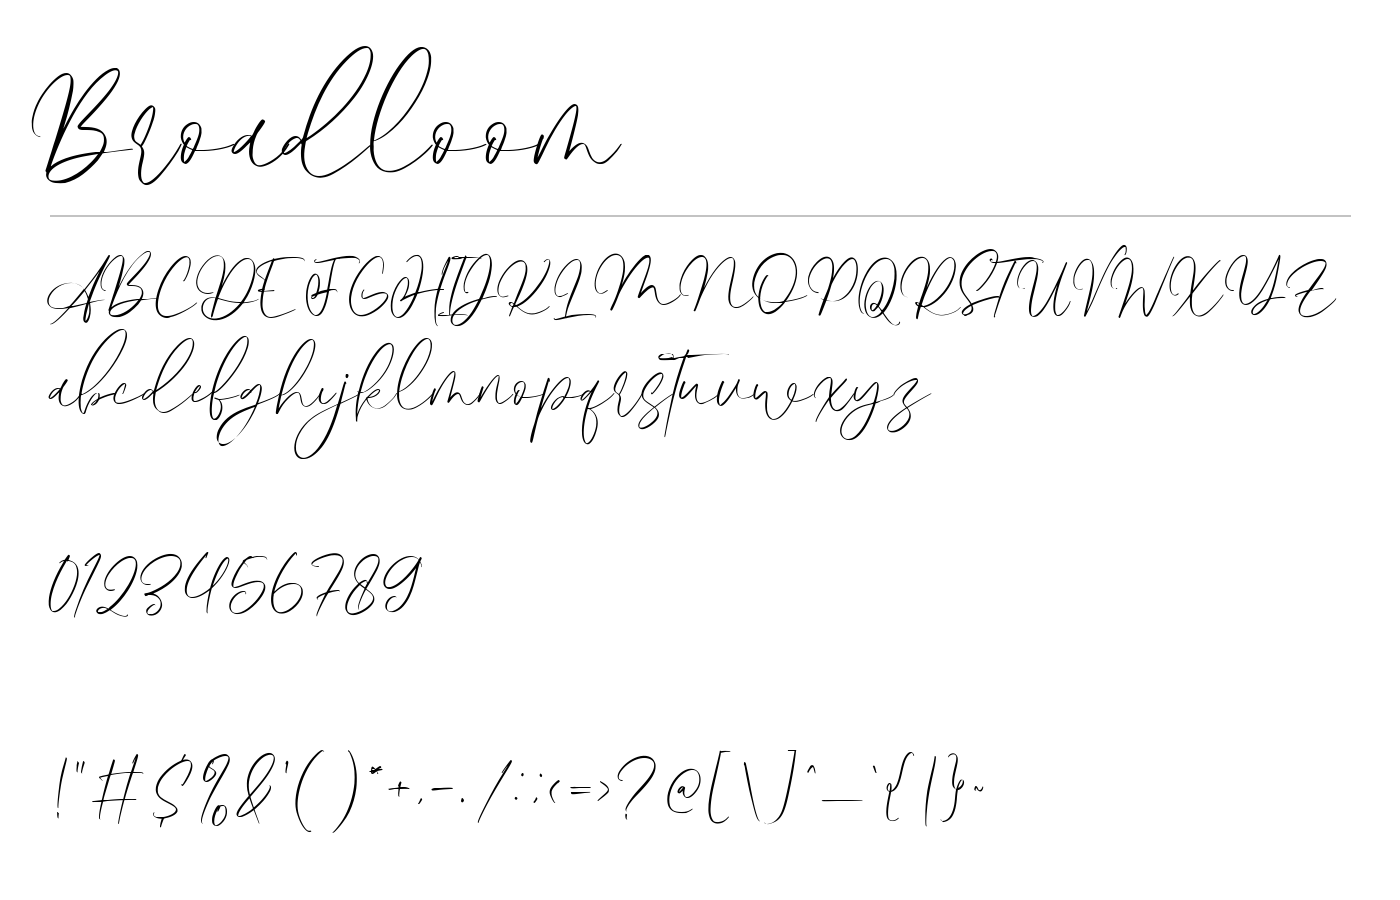 Broadloom
ABCDEFGHIJKLMNOPQRSTUVWXYZ
abcdefghijklmnopqrstuvwxyz
0123456789
!"#$%&'()*+,-./:;<=>?@[\]^_`{|}~